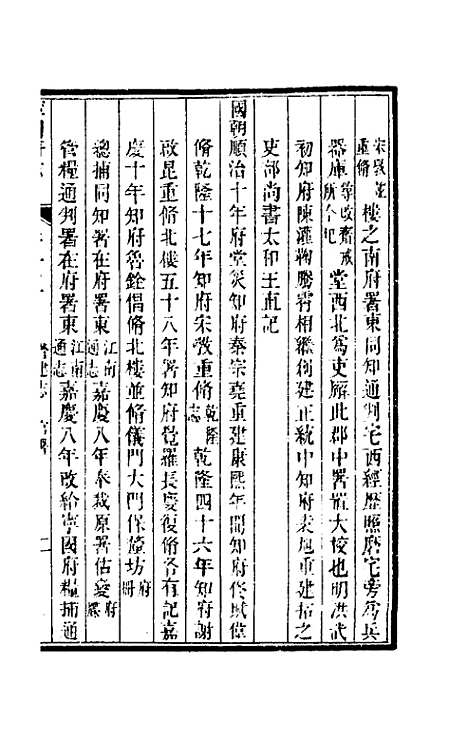 宋斆並
重脩
樓之南府署東同知通判宅西經歷照磨宅旁爲兵
器庫
等改齋戒
所今圮
堂西北爲吏廨此郡中署置大按也明洪武
初知府陳灌鞫騰霄相繼創建正統中知府袁旭重建拓之
吏部尚書太和王直記
國朝順治十年府堂災知府秦宗堯重建康熙年間知府佟賦偉
脩乾隆十七年知府宋斆重脩
乾隆
志
乾隆四十六年知府謝
啟昆重脩北樓五十八年署知府覺羅長慶復脩各有記嘉
慶十年知府魯銓倡脩北樓並脩儀門大門保釐坊
府
冊
總捕同知署在府署東
江南
通志
嘉慶八年奉裁原署估變
府
管糧通判署在府署東
江南
通志
嘉慶八年改給寧國府糧捕通
營建志 官署
二